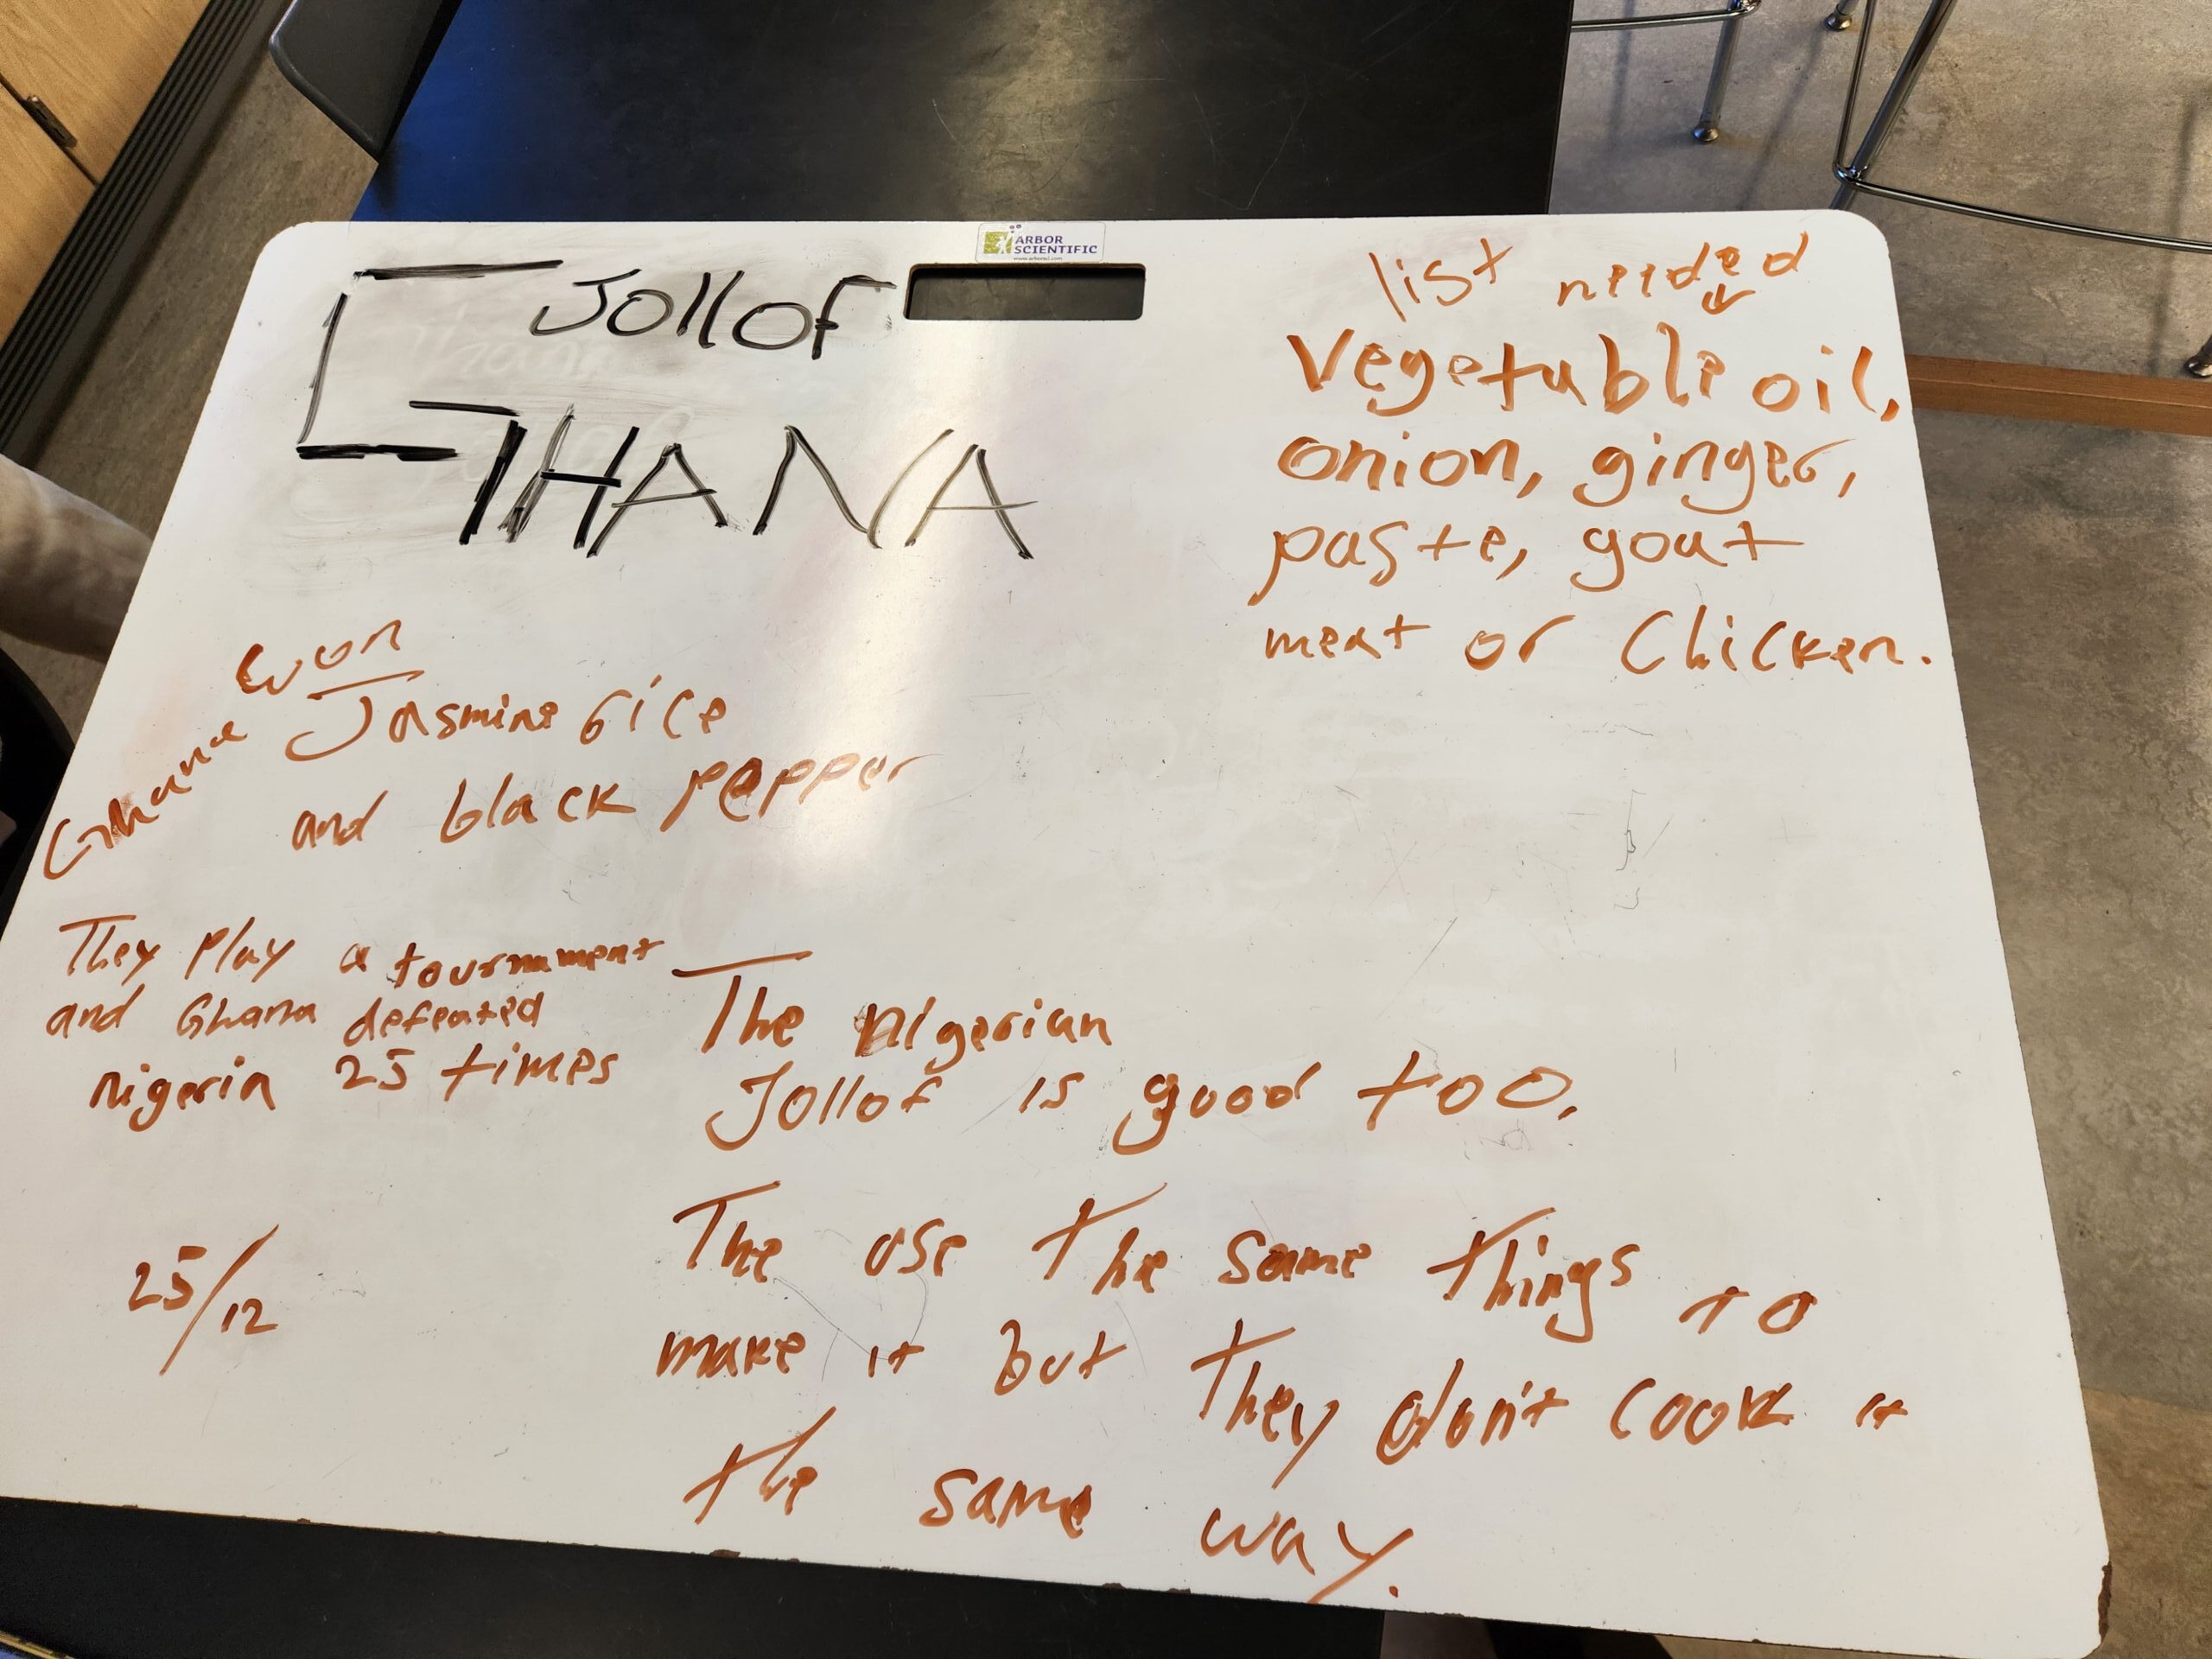 ARBOR
SCIENTIFIC
Jollof
GHANA
list needed
Vegetable oil,
onion, ginger,
paste, goat
meat or Chicken.
Ghana won
Jasmine rice
and black pepper
They Play a tournament
and Ghana defeated
nigeria 25 times
25/12
The Nigerian
Jollof is good too.
The use the same things to
make it but they don't cook it
the same way.